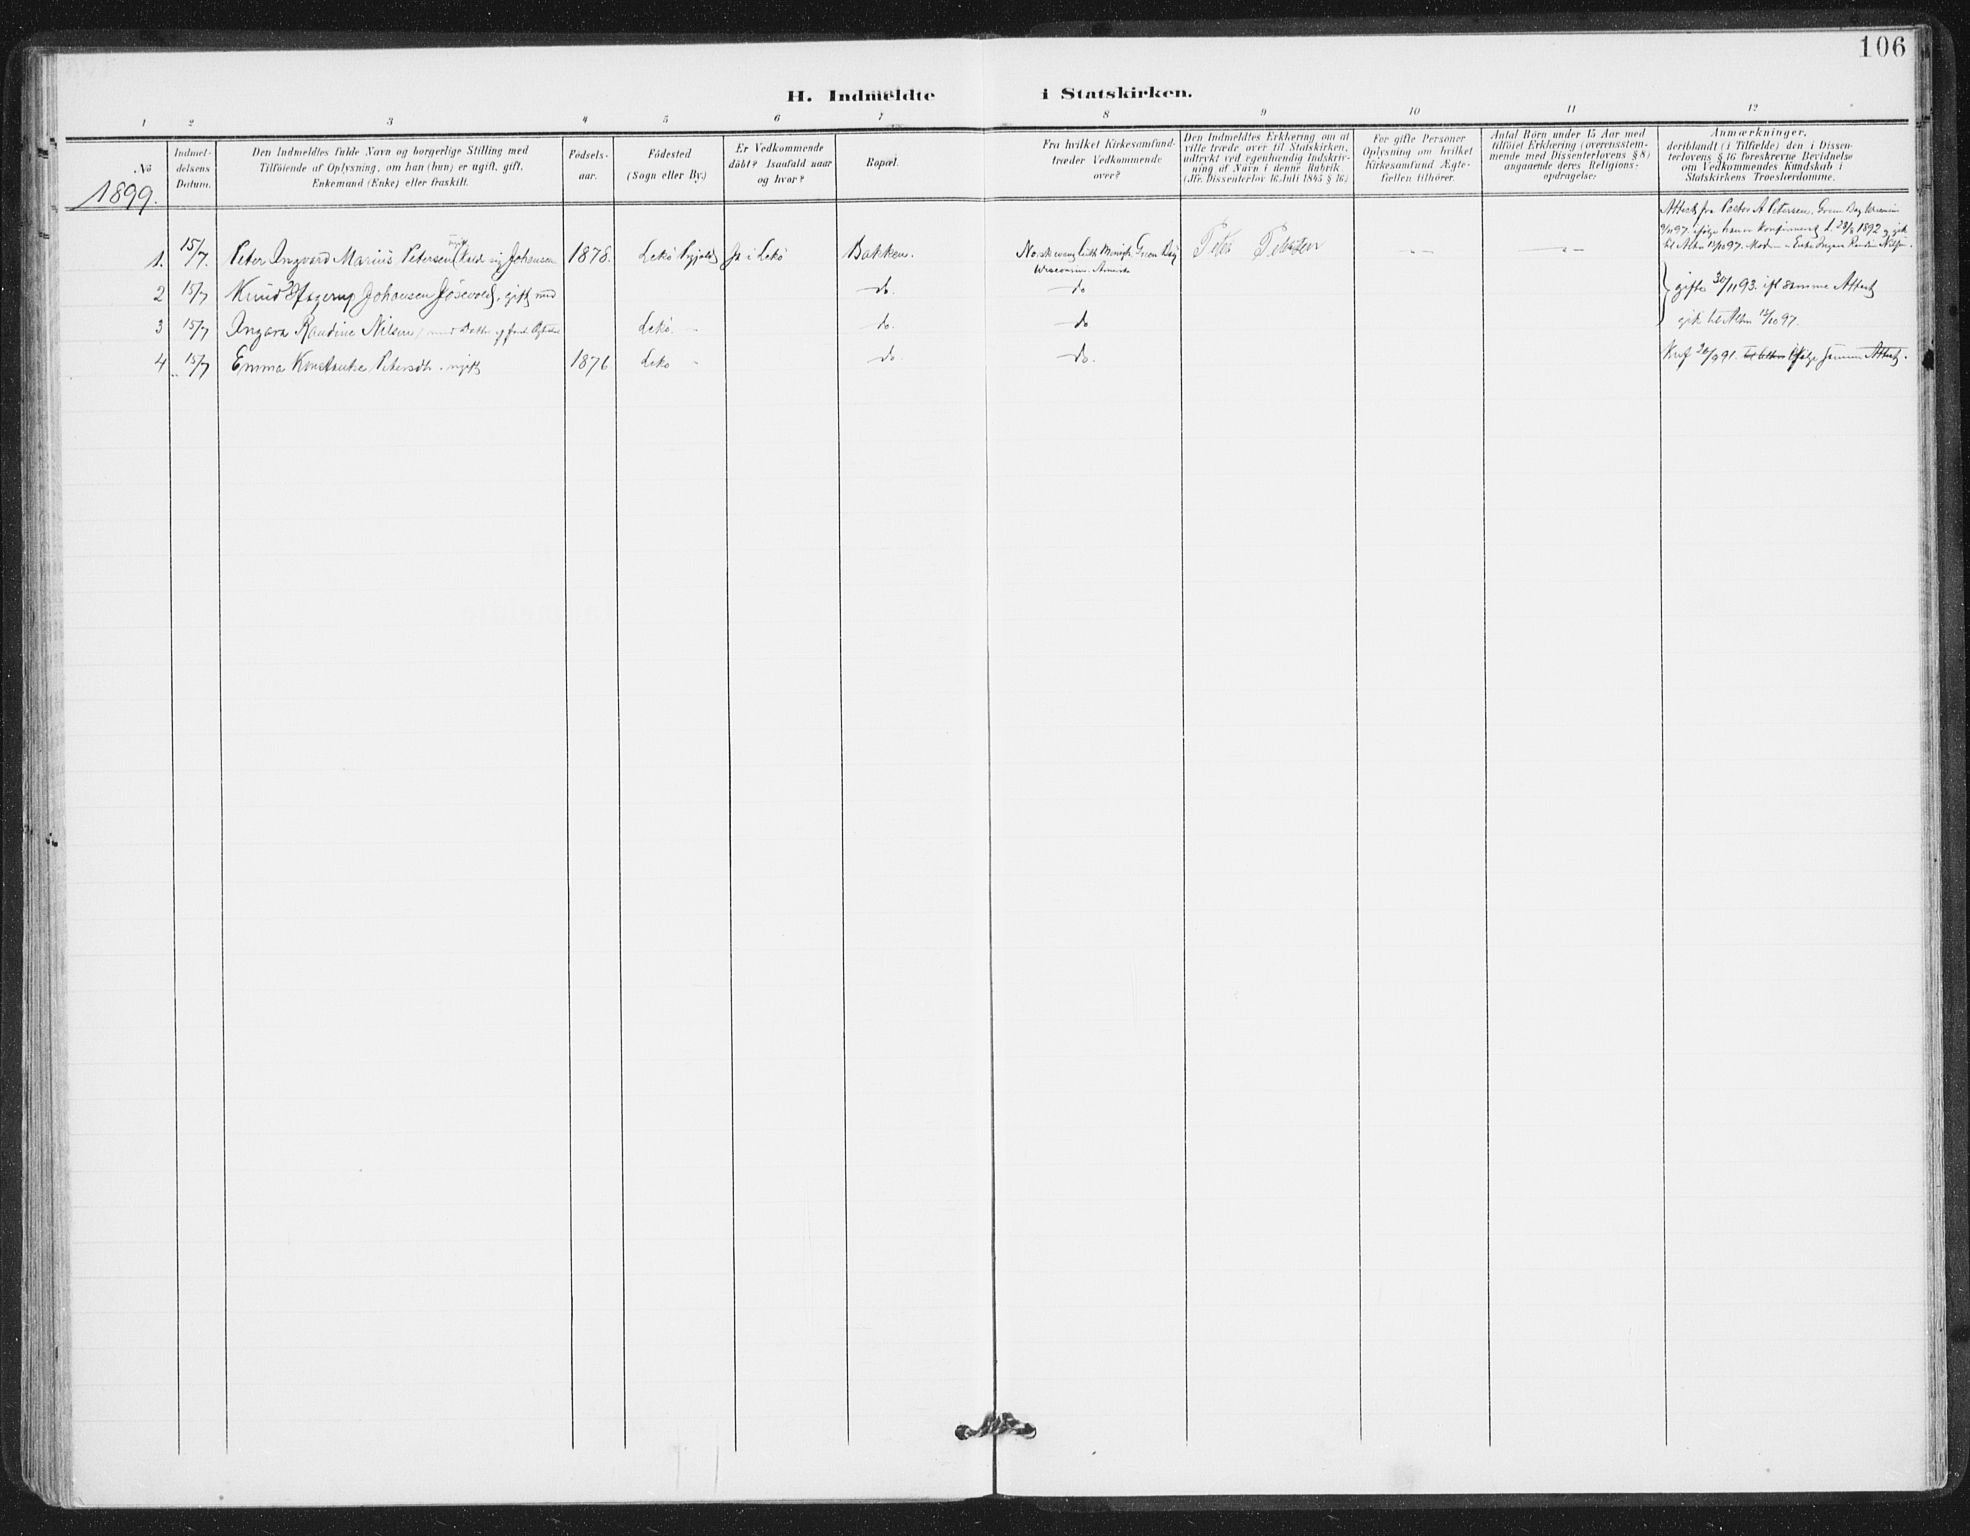 106
H. Indmeldte i Statskirken.
1 2 3 4 5 6 7 8 9 10 11 12
No
Indmel-
delsens
Datum.
Den Indmeldtes fulde Navn og borgerlige Stilling med
Tilföiende af Oplysning, om han (hun) er ugift, gift,
Enkemand (Enke) eller fraskilt.
Födsels-
aar.
Födested
(Sogn eller By.)
Er Vedkommende
döbt? Isaafald naar
og hvor?
Bopæl.
Fra hvilket Kirkesamfund
træder Vedkommende
over?
Den Indmeldtes Erklæring om at
ville træde over til Statskirken,
udtrykt ved egenhændig Indskriv-
ning af Navn i denne Rubrik
(Jfr. Dissenterlov 16 Juli 1845 § 16)
For gifte Personer
Oplysning om hvilket
Kirkesamfund Ægte-
fællen tilhörer.
Antal Börn under 15 Aar med
tilföiet Erklæring (overensstem-
mende med Dissenterlovens § 8)
angaaende deres Religions-
opdragelse:
Anmærkninger,
deriblandt (i Tilfælde) den i Dissen-
terlovens § 16 foreskrevne Bevidnelse
om Vedkommendes Kundskab i
Statskirkens Troeslærdomme.
1899.
Attest fra Pastor A Petersen, Green Bay Wisconsin
9/11 97 ifølge han er konfirmeret d. 28/8 1892 og gik
1. 15/7. Peter Ingvard Marius Petersen ( sig Johansen 1878. Lekö Ja i Lekö Bakken. Norsk evang luth Menigh Green Bay Peter Petersen — — til Altm 12/10 97. Moder = Enke Ingara Randine Nilsen.
Wisconsin. Amerika
2 15/7 Knud Johansen, gift med do. do gifte 30/11 93. ifl samme Attest
3 15/7 Ingara Randine Nilsen Lekö. - do. do gik til Altm 12/10 97.
4 15/7 Emma Konstanse Petersdtr. ugift 1876 Leko - do. do. Knf 20/9 91. ifølge samme Attest.